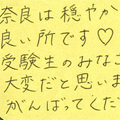 奈良は穏やか
良い所です♡
受験生のみなさ
大変だと思いま
がんばってくだ